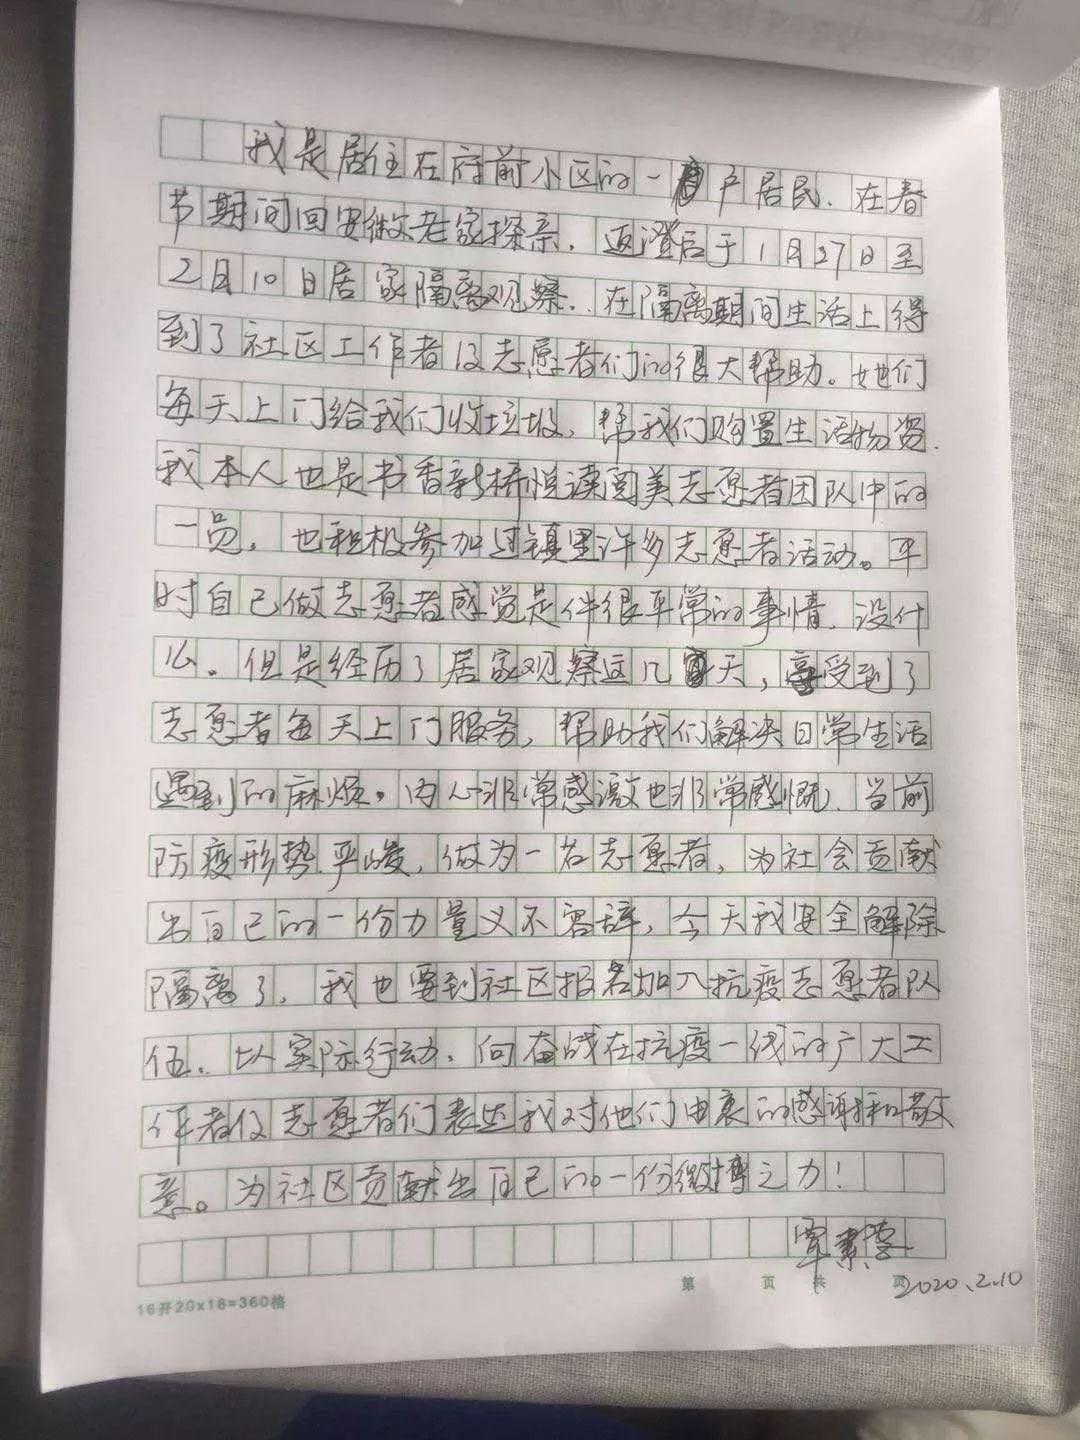 我是居住在府前小区的一户居民.在春
节期间回安徽老家探亲.返澄后于1月27日至
2月10日居家隔离观察..在隔离期间生活上得
到了社区工作者及志愿者们的很大帮助。她们
每天上门给我们收垃圾,帮我们购置生活物资.
我本人也是书香新桥悦读阅美志愿者团队中的
一员,也积极参加过镇里许多志愿者活动。平
时自己做志愿者感觉是件很平常的事情.没什
么。但是经历了居家观察这几天,享受到了
志愿者每天上门服务,帮助我们解决日常生活
遇到的麻烦。内心非常感激也非常感慨.当前
防疫形势严峻,做为一名志愿者,为社会贡献
出自己的一份力量义不容辞,今天我安全解除
隔离了.我也要到社区报名加入抗疫志愿者队
伍.以实际行动.向奋战在抗疫一线的广大工
作者及志愿者们表达我对他们由衷的感谢和敬
意。为社区贡献出自己的一份微博之力!
覃素
2020.2.10
16开20x18=360格
第 页 共 页